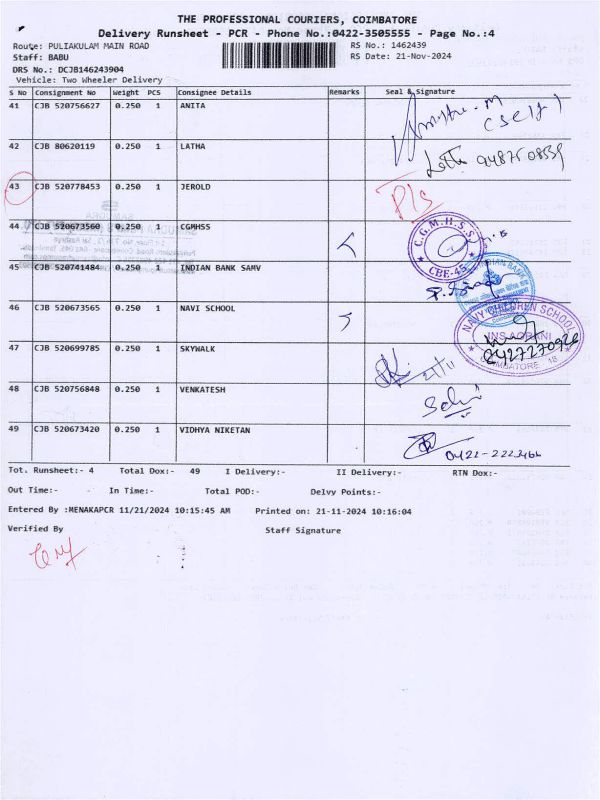 THE PROFESSIONAL COURIERS, COIMBATORE
Delivery Runsheet - PCR - Phone No.:0422-3505555 - Page No.:4
Route: PULIAKULAM MAIN ROAD RS No.: 1462439
Staff: BABU RS Date: 21-Nov-2024
DRS No.: DCJB146243904
Vehicle: Two Wheeler Delivery
S No Consignment No Weight PCS Consignee Details Remarks Seal & Signature
41 CJB 520756627 0.250 1 ANITA
(self)
42 CJB 80620119 0.250 1 LATHA
Latha
43 CJB 520778453 0.250 1 JEROLD
Pls
44 CJB 520673560 0.250 1 CGMHSS
C.G.M.H.S.S
CBE-45
45 CJB 520741484 0.250 1 INDIAN BANK SAMV
INDIAN BANK
46 CJB 520673565 0.250 1 NAVI SCHOOL
NAVY CHILDREN SCHOOL
INS AGRANI
COIMBATORE 18
47 CJB 520699785 0.250 1 SKYWALK
21/11
48 CJB 520756848 0.250 1 VENKATESH
49 CJB 520673420 0.250 1 VIDHYA NIKETAN
Tot. Runsheet:- 4 Total Dox:- 49 I Delivery:- II Delivery:- RTN Dox:-
Out Time:- In Time:- Total POD:- Delvy Points:-
Entered By :MENAKAPCR 11/21/2024 10:15:45 AM Printed on: 21-11-2024 10:16:04
Verified By Staff Signature